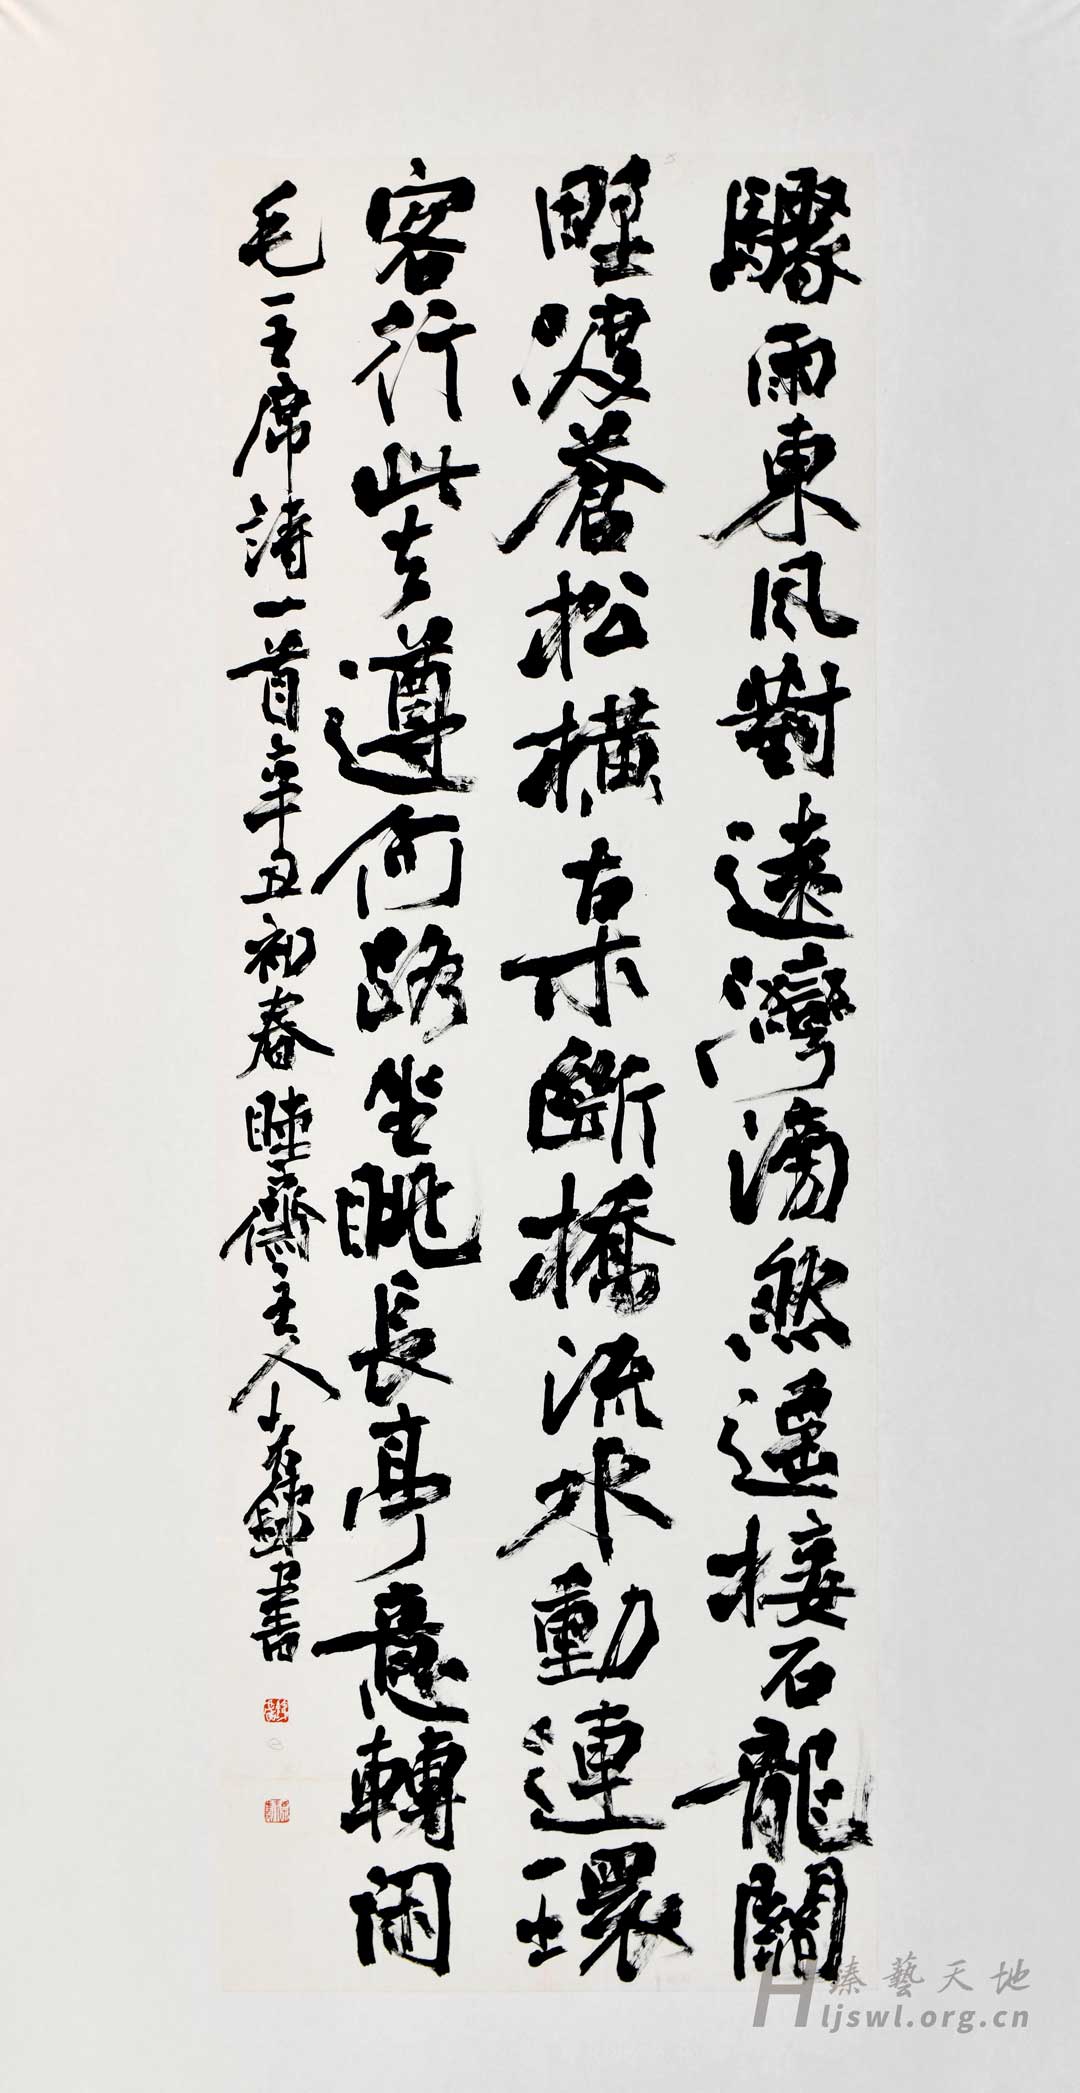 驟雨東風對遠灣滂然遥接石龍關
野渡蒼松橫古木斷橋流水動連環
客行此去遵何路坐眺長亭意轉閑
毛主席詩一首辛丑初春睦齋主人書
臻藝天地
Hljswl.org.cn